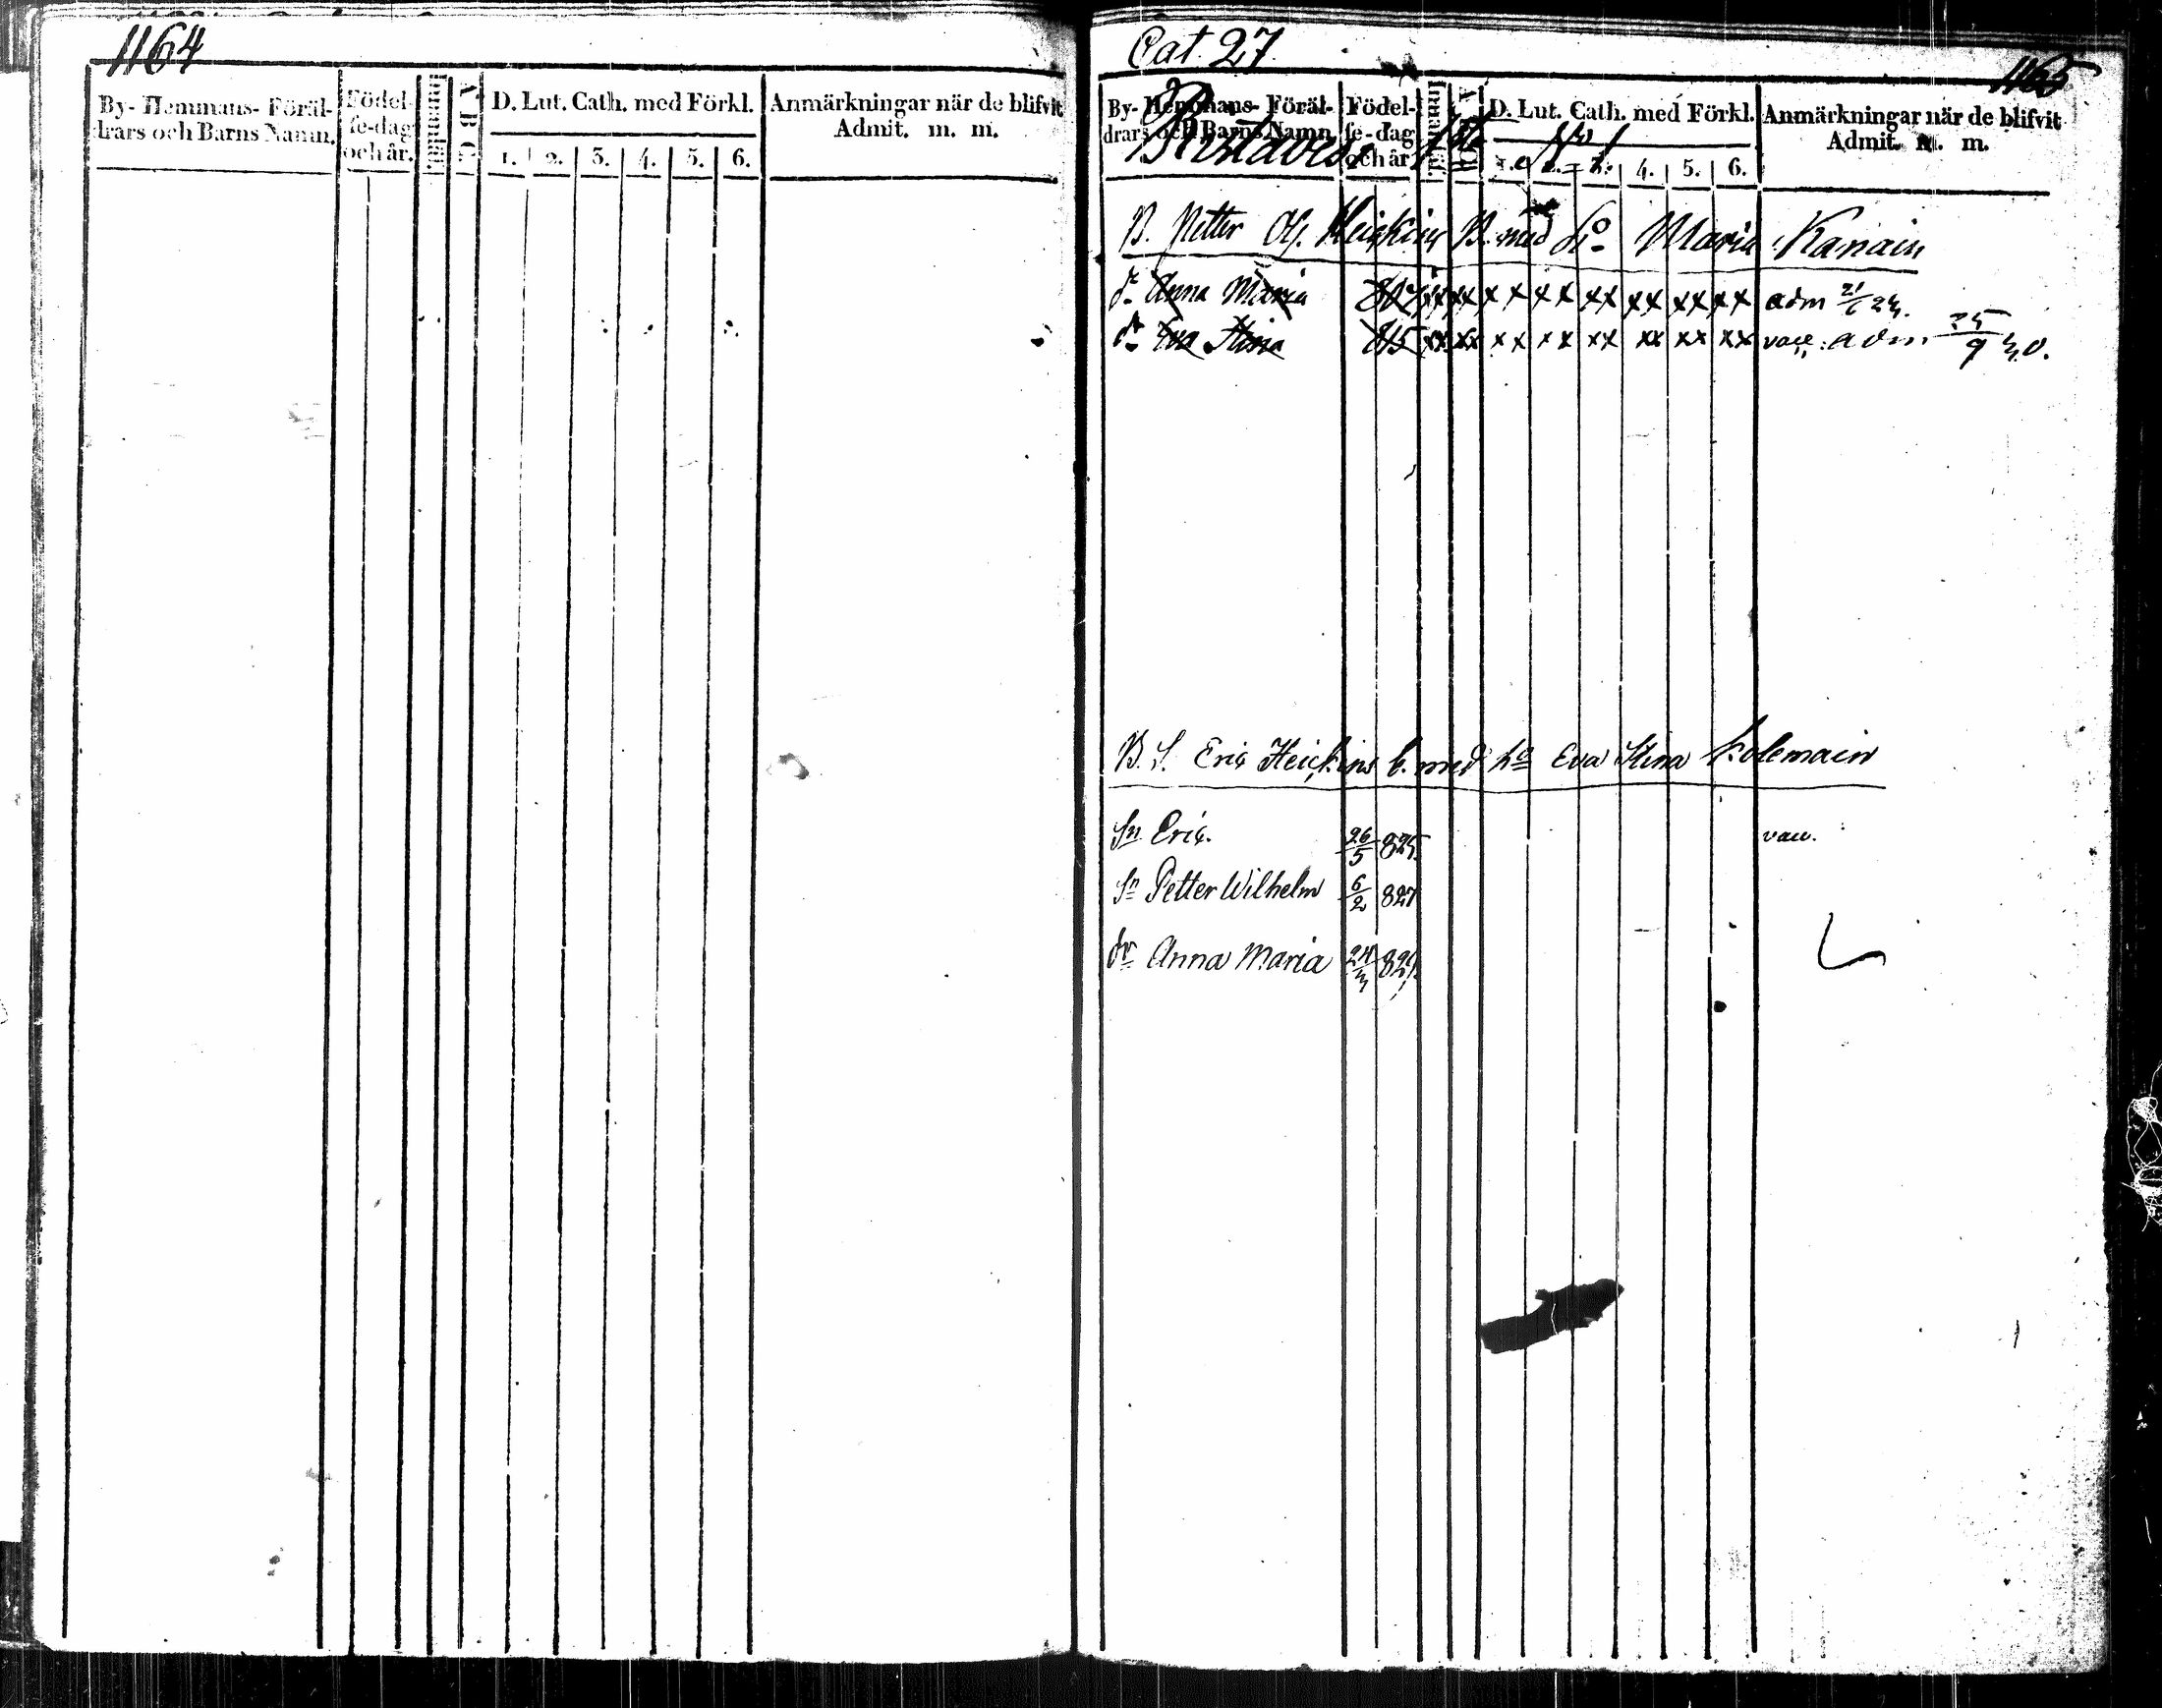 1164
By- Hemmans- Föräl-
drars och Barns Namn.
Födel-
se-dag
och år.
Innanläs.
A B C.
D. Lut. Cath. med Förkl.
1. 2. 3. 4. 5. 6.
Anmärkningar när de blifvit
Admit. m. m.
Cat. 27
1165
By- Hemmans- Föräl-
drars och Barns Namn.
Födel-
se-dag
och år.
D. Lut. Cath. med Förkl.
1. 2. 3. 4. 5. 6.
Anmärkningar när de blifvit
Admit. m. m.
B. Petter Heickins B. med ho Maria Kanain
dr Anna Maria xx xx xx xx xx xx xx xx adm 21/6 24.
dr Eva Stina 815 xx xx xx xx xx xx xx xx vacc. adm 25/9 30.
B. S. Eric Heickins b. med ho Eva Stina Kolemain
Sn Eric. 26/5 825. vacc.
Sn Petter Wilhelm 6/2 827
dr Anna Maria 24/3 829.